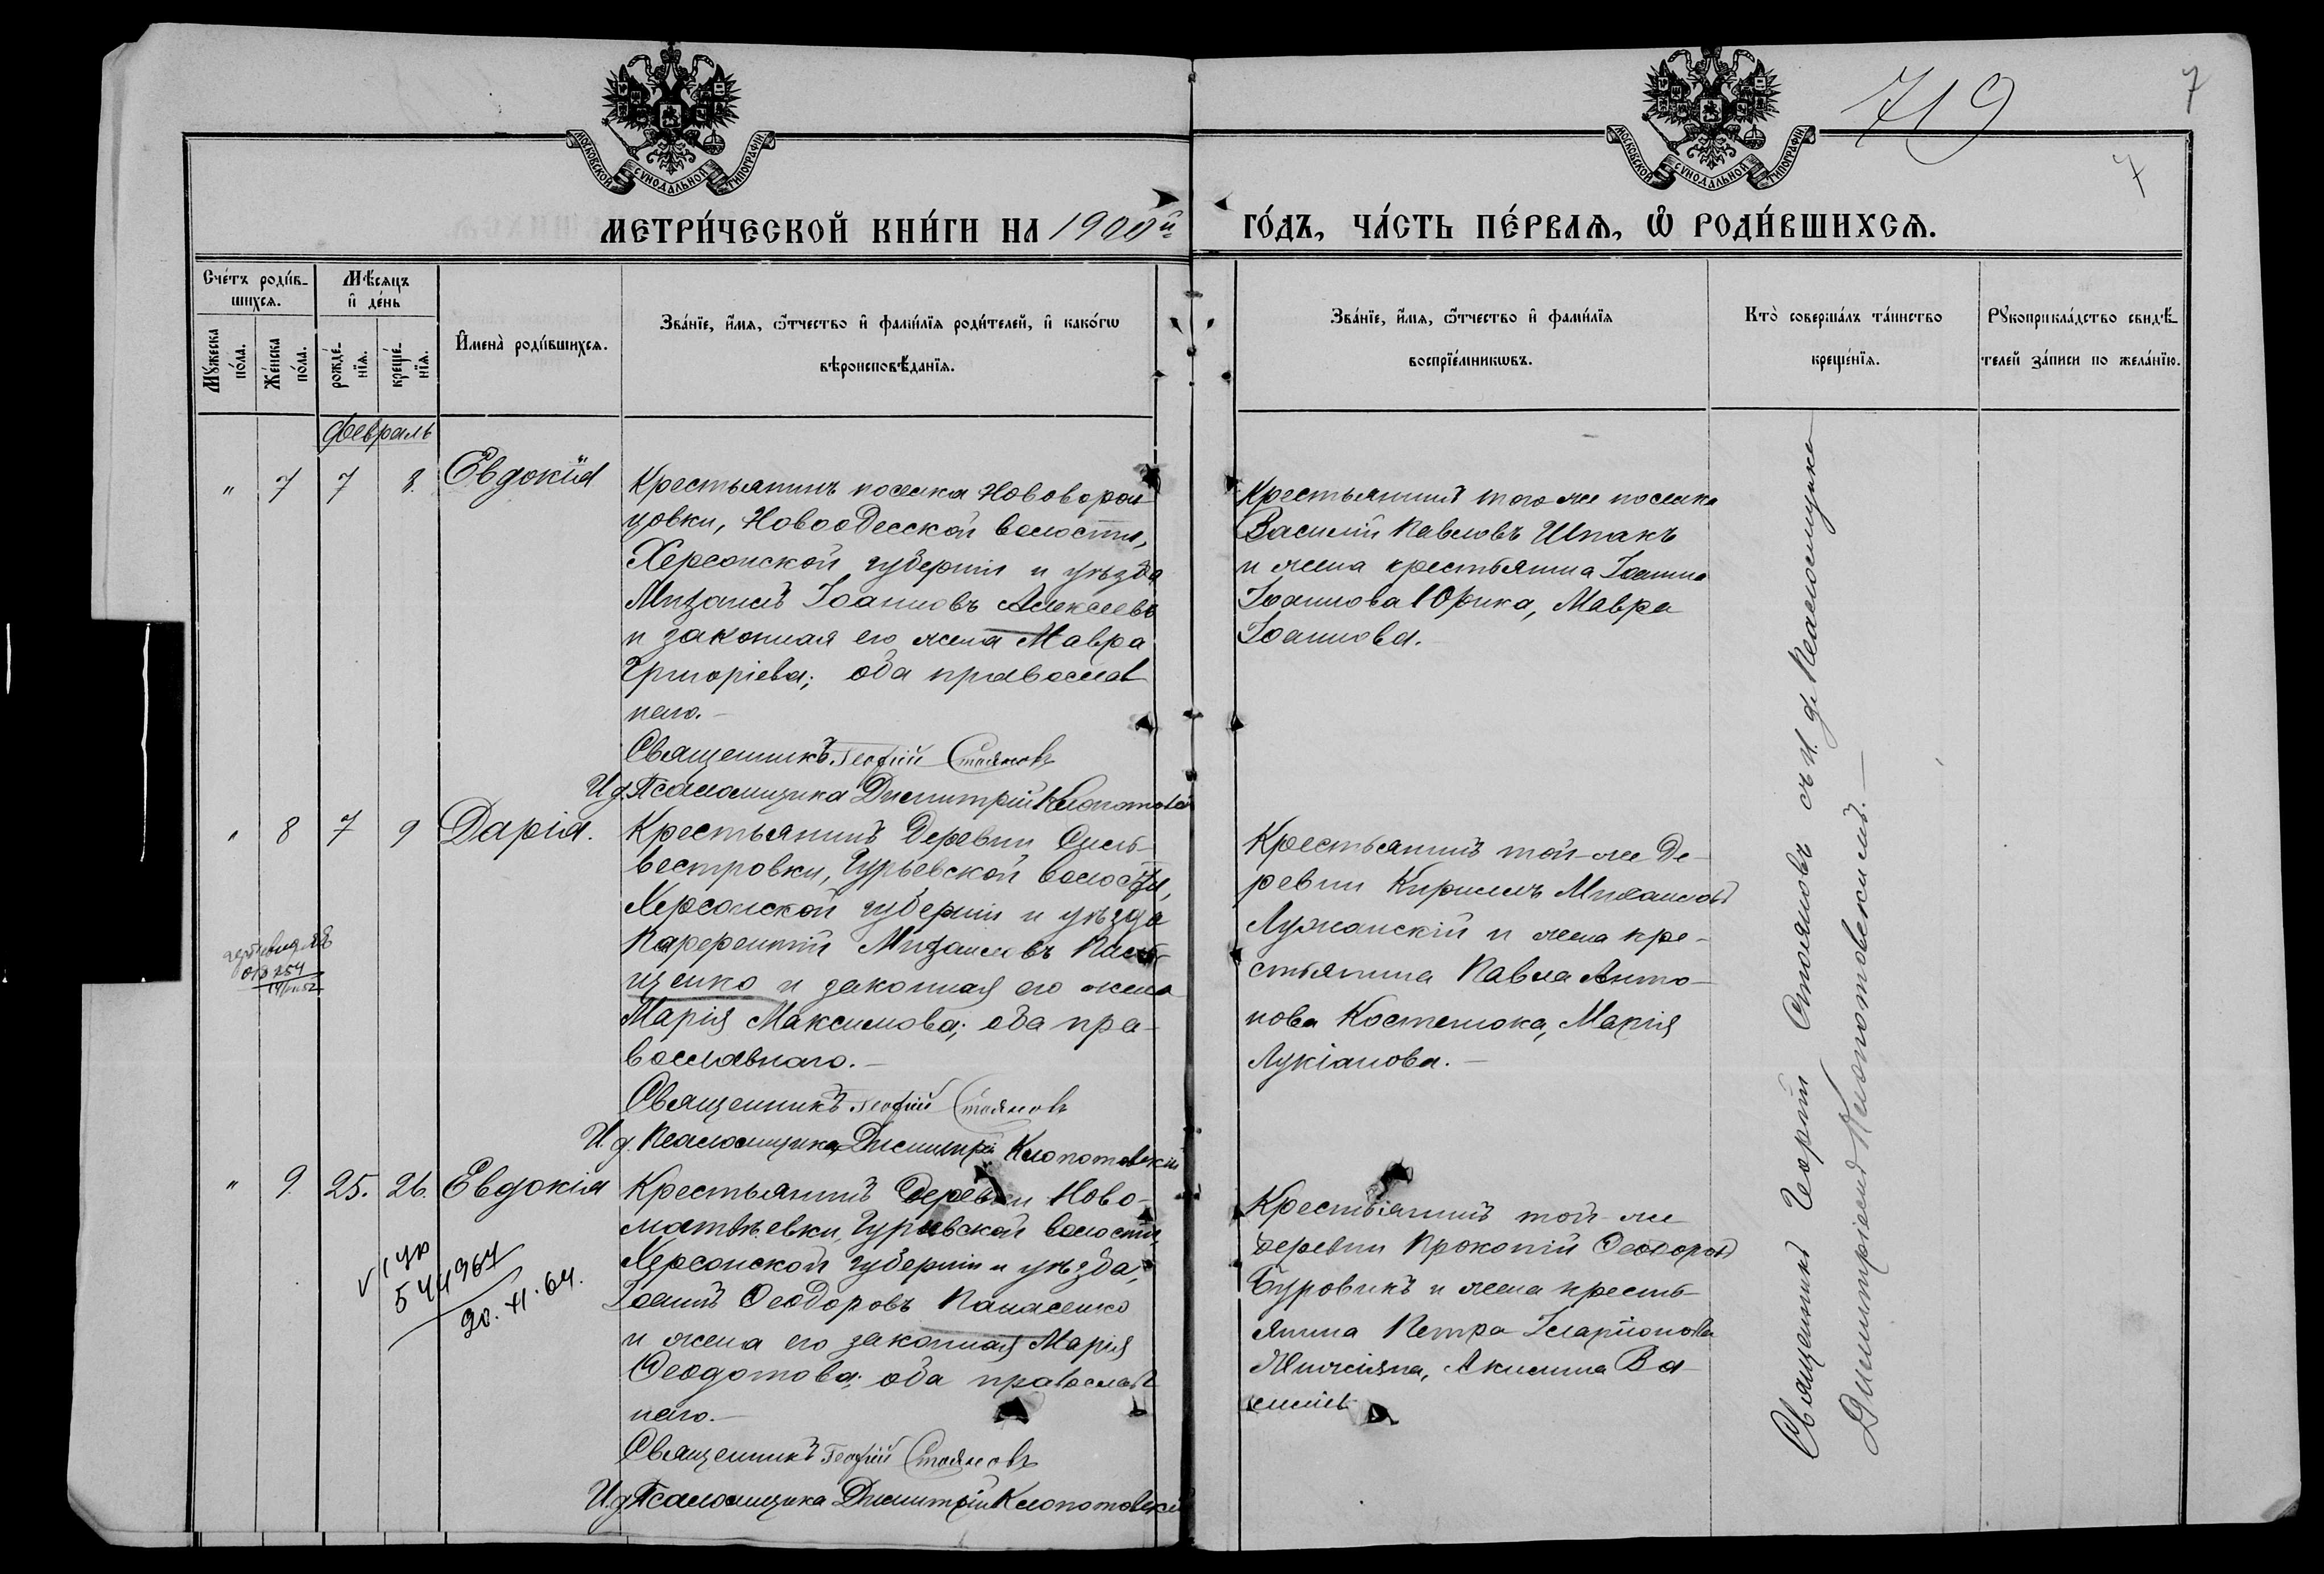 719
7
7
МОСКОВСКОЙ СѴНОДАЛЬНОЙ ТИПОГРАФІИ
МОСКОВСКОЙ СѴНОДАЛЬНОЙ ТИПОГРАФІИ
МЕТРИ́ЧЕСКОЙ КНИ́ГИ НА 1900й ГО́ДЪ, ЧА́СТЬ ПЕ́РВАѦ, Ѽ РОДИ́ВШИХСѦ.
Сче́тъ роди́в-
шихсѧ.
Мꙋ́жеска по́ла.
Же́нска по́ла.
Мѣ́сѧцъ
и҆ де́нь
рожде́-нїѧ.
креще́-нїѧ.
И҆мена̀ роди́вшихсѧ.
Зва́нїе, и҆́мѧ, ѻ҆́тчество и҆ фами́лїѧ роди́телей, и҆ како́гѡ
вѣроисповѣ́данїѧ.
Зва́нїе, и҆́мѧ, ѻ҆́тчество и҆ фами́лїѧ
воспрїе́мникѡвъ.
Кто̀ соверша́лъ та́инство
креще́нїѧ.
Рꙋкоприкла́дство свидѣ́-
телей за́писи по жела́нїю.
Февраль
" 7 7 8. Евдокія
Крестьянинъ поселка Нововорон-
цовки, Новоодесской волости,
Херсонской губерніи и уѣзда
Михаилъ Іоанновъ Алексѣевъ
и законная его жена Мавра
Григоріева; оба православ-
наго.-
Священникъ Георгій Стояновъ
И. д. Псаломщика Димитрій Клопотовскій
Крестьянинъ того же поселка
Василій Павловъ Шпакъ
и жена крестьянина Іоанна
Іоаннова Юрика, Мавра
Іоаннова.
" 8 7 9 Дарія.
Крестьянинъ деревни Силь-
вестровки, Гурьевской волости,
Херсонской губерніи и уѣзда
Михаиловъ
щенко и законная его жена
Марія Максимова; оба пра-
вославнаго.-
Священникъ Георгій Стояновъ
И. д. Псаломщика Димитрій Клопотовскій
Крестьянинъ той-же де-
ревни Кириллъ Михаиловъ
Лужанскій и жена кре-
стьянина Павла Анто-
нова Костенюка, Марія
Лукіанова.-
254
" 9. 25. 26. Евдокія
544967
20.XI.64.
Крестьянинъ деревни Ново-
матвѣевки, Гурьевской волости,
Херсонской губерніи и уѣзда,
Іоаннъ Ѳеодоровъ Панасенко
и жена его законная Марія
Ѳеодотова; оба православ-
наго.-
Священникъ Георгій Стояновъ
И. д. Псаломщика Димитрій Клопотовскій
Крестьянинъ той-же
деревни Прокопій Ѳеодоровъ
Буровикъ и жена кресть-
янина Петра Иларіонова
Акилина Ва-
силіев
Священникъ Георгій Стояновъ съ И. д. Псаломщика
Димитріемъ Клопотовскимъ.-